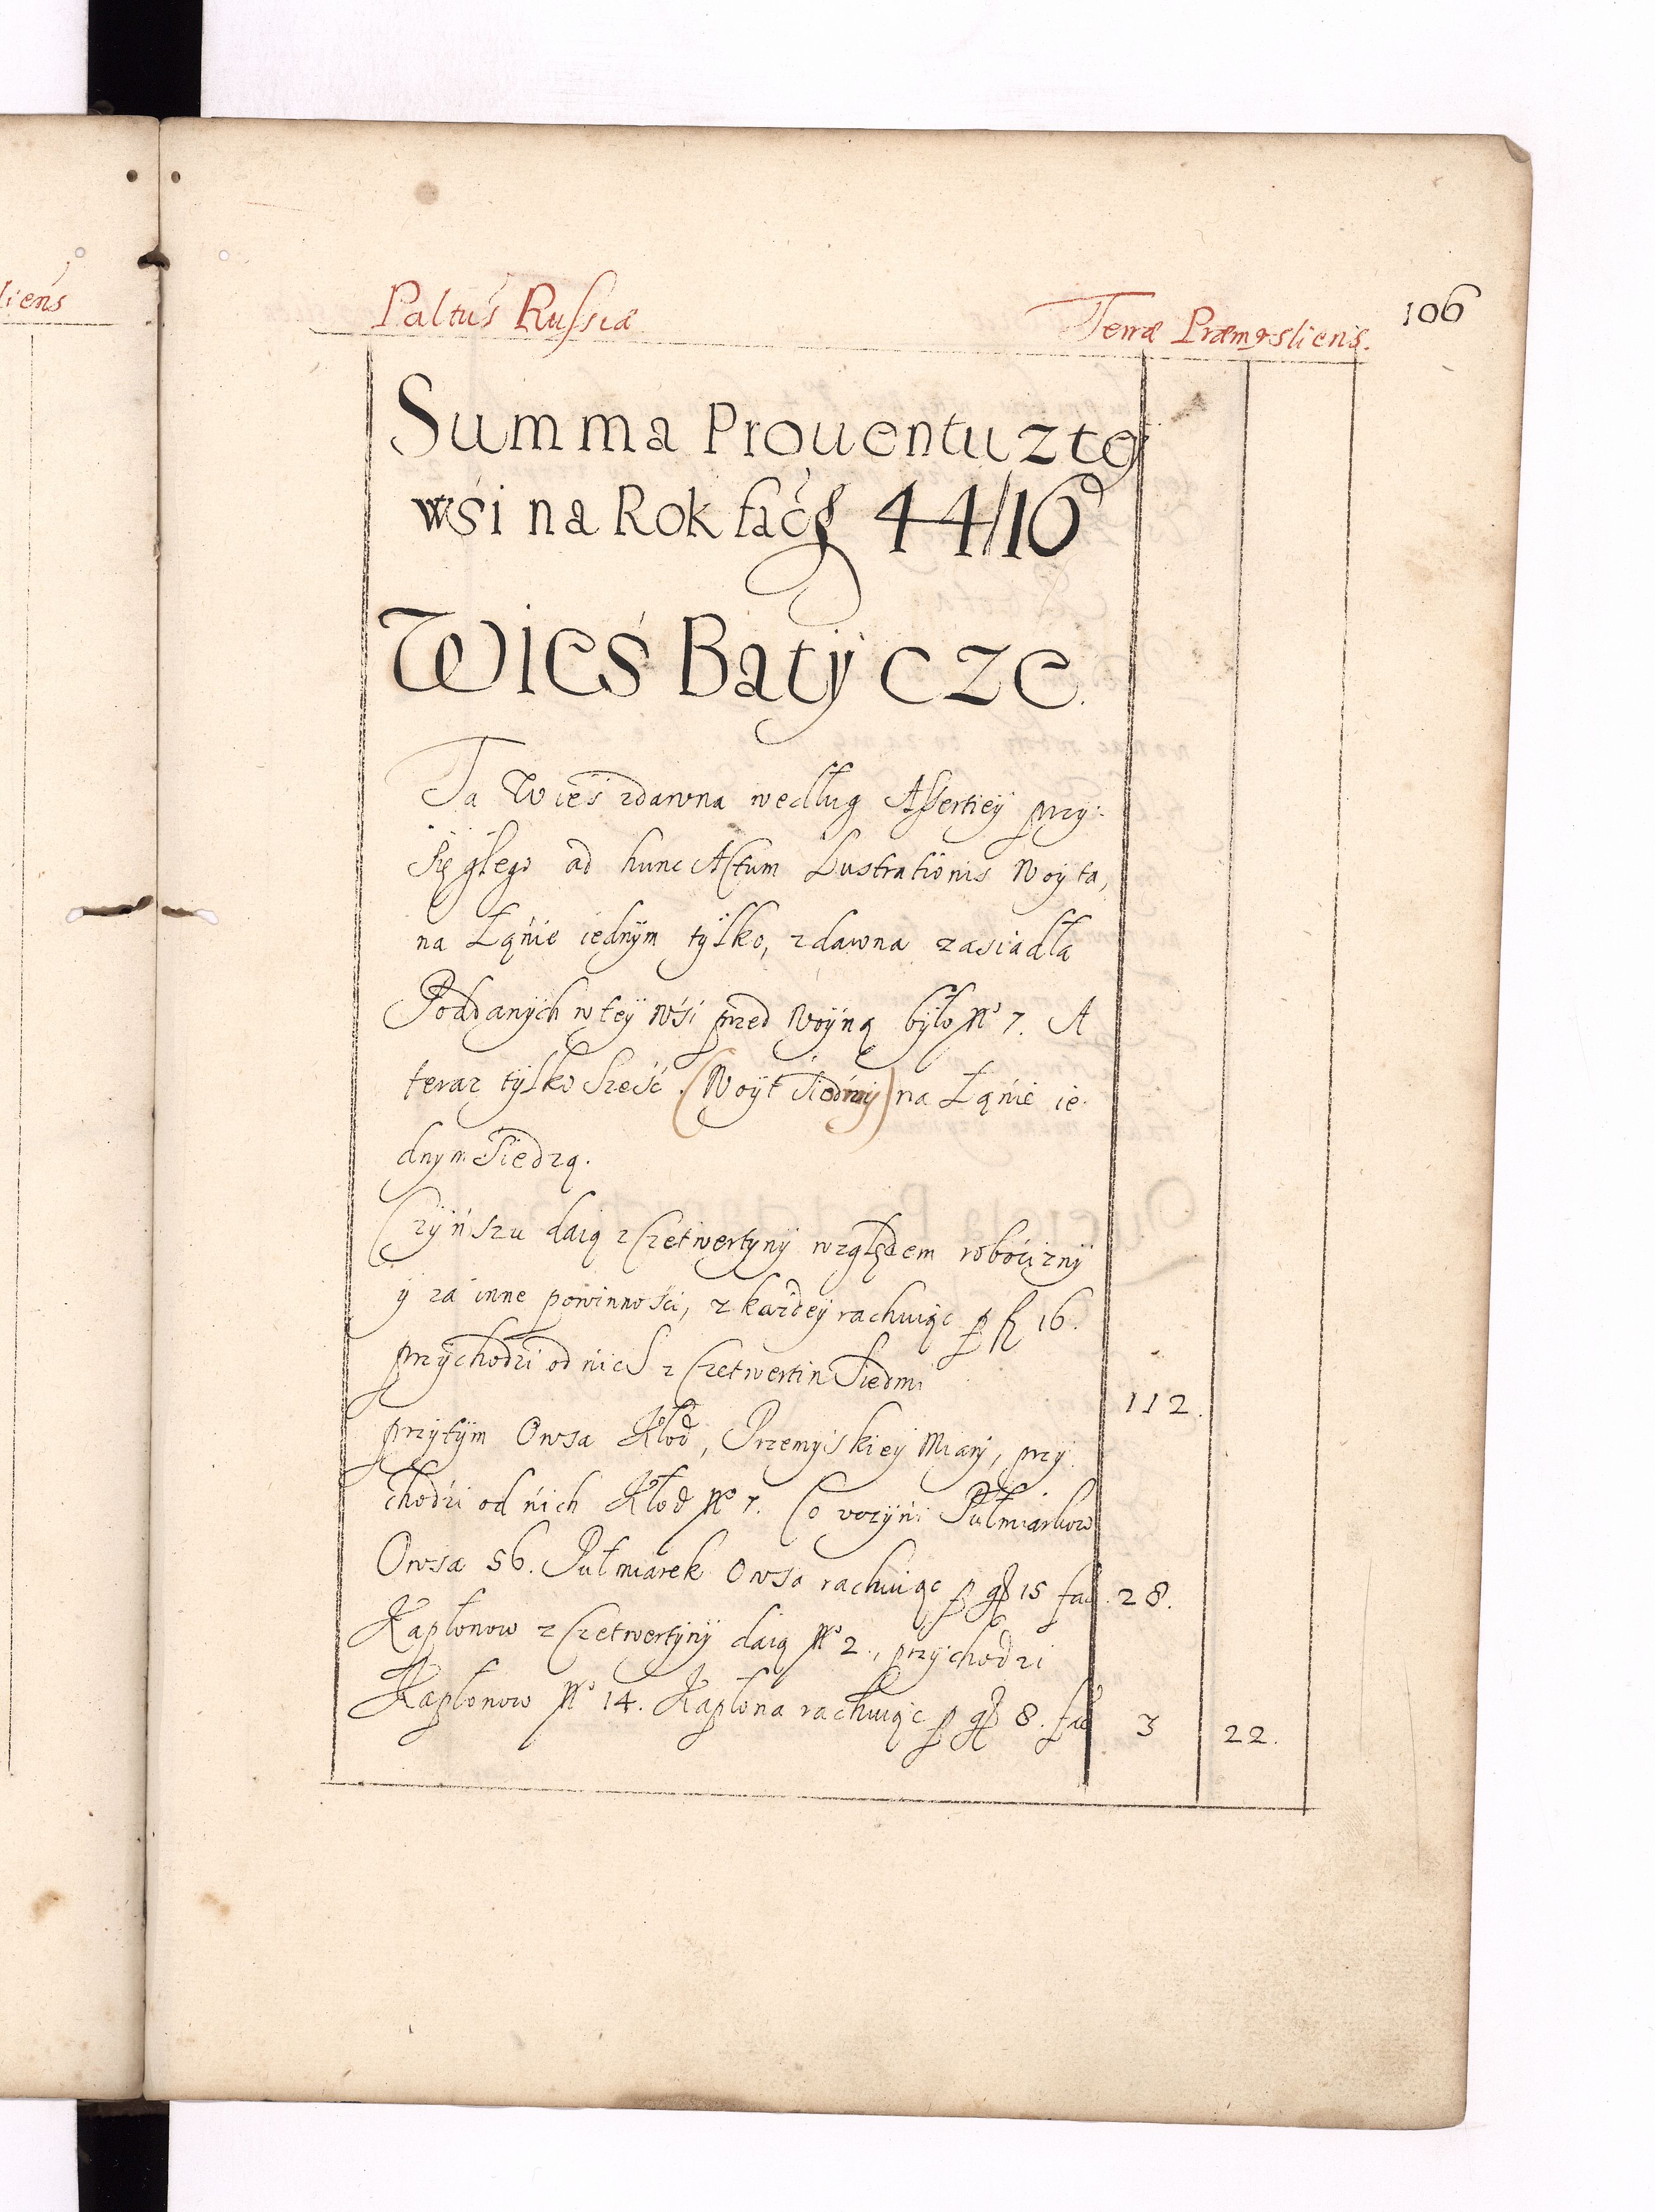 liens
Paltus Russiæ
Terræ Præmysliens.
106
Summa Prouentu z tey
wśi na Rok facit 44/16
Wieś Batÿcze.
Ta Wieś zdawna według Assertieÿ przÿ:
sięgłego ad hunc Actum Lustrationis Woÿta,
na Łąńie iednÿm tÿlko, zdawna zasiadła
Poddanÿch w teÿ Wśi przed Woÿną bÿło No 7. A
teraz tÿlko Sześć. (Woÿt Siodmÿ) na Łąńie ie:
dnym Siedzą.
Czÿńszu daią z Czetwertÿnÿ względem robociznÿ
ÿ za inne powinnośći, z każdeÿ rachuiąc p fl 16.
przÿchodzi od ńich z Czetwertin Siedmi
112.
przÿtÿm Owsa Kłod, Przemÿskieÿ Miarÿ, przÿ:
chodźi od ńich Kłod No 7. Co vczÿńi Pułmiarkow
Owsa 56. Pułmiarek Owsa rachuiąc p gr 15 fac. 28.
Kapłonow z Czetwertÿnÿ daią No 2., przÿchodzi
Kapłonow No 14. Kapłona rachuiąc p gr 8. fac 3 22.